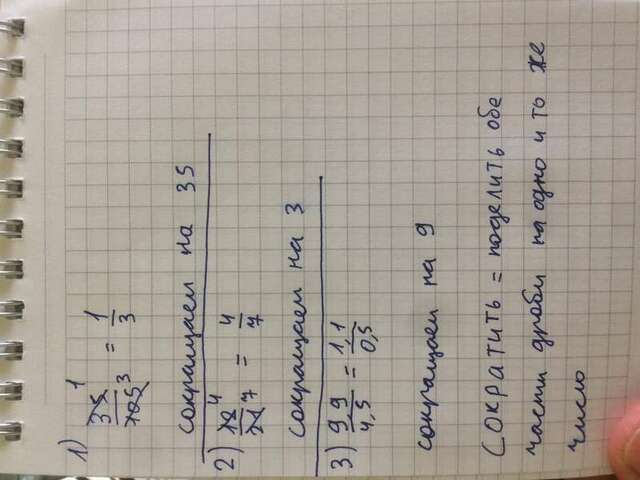 1) 35/105 1 3 = 1/3
сокращаем на 35
2) 12/21 4 7 = 4/7
сокращаем на 3
3) 9,9/4,5 = 1,1/0,5
сокращаем на 9
СОКРАТИТЬ = поделить обе
части дроби на одно и то же
число